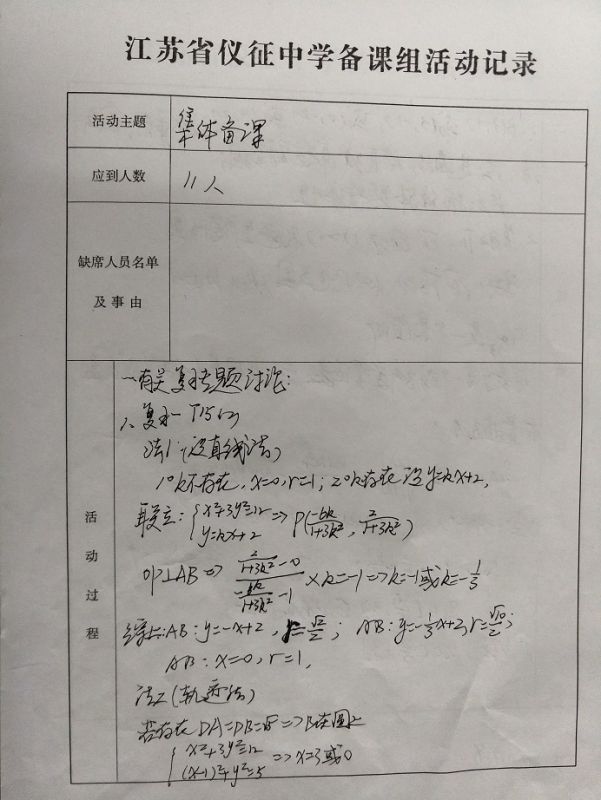 江苏省仪征中学备课组活动记录
活动主题 集体备课
应到人数 11人
缺席人员名单
及事由
活动过程
一.有关复习专题讨论:
1、复习一 T15(2)
法1:(设直线法)
1°k不存在,x=0,r=1;2°k存在设y=kx+2,
联立:{x²+3y²=12 y=kx+2 => P(-6k/1+3k², 2/1+3k²)
DP⊥AB => (2/1+3k² - 0)/(-6k/1+3k² - 1) × k=-1 => k=-1或k=-1/3
综上:AB:y=-x+2,r=√2/2; AB:y=-1/3x+2,r=√10/2;
AB:x=0,r=1,
法2(轨迹法)
若存在DA=DB=√5 => B在圆上
{x²+3y²=12 (x-1)²+y²=5 => x=3或0